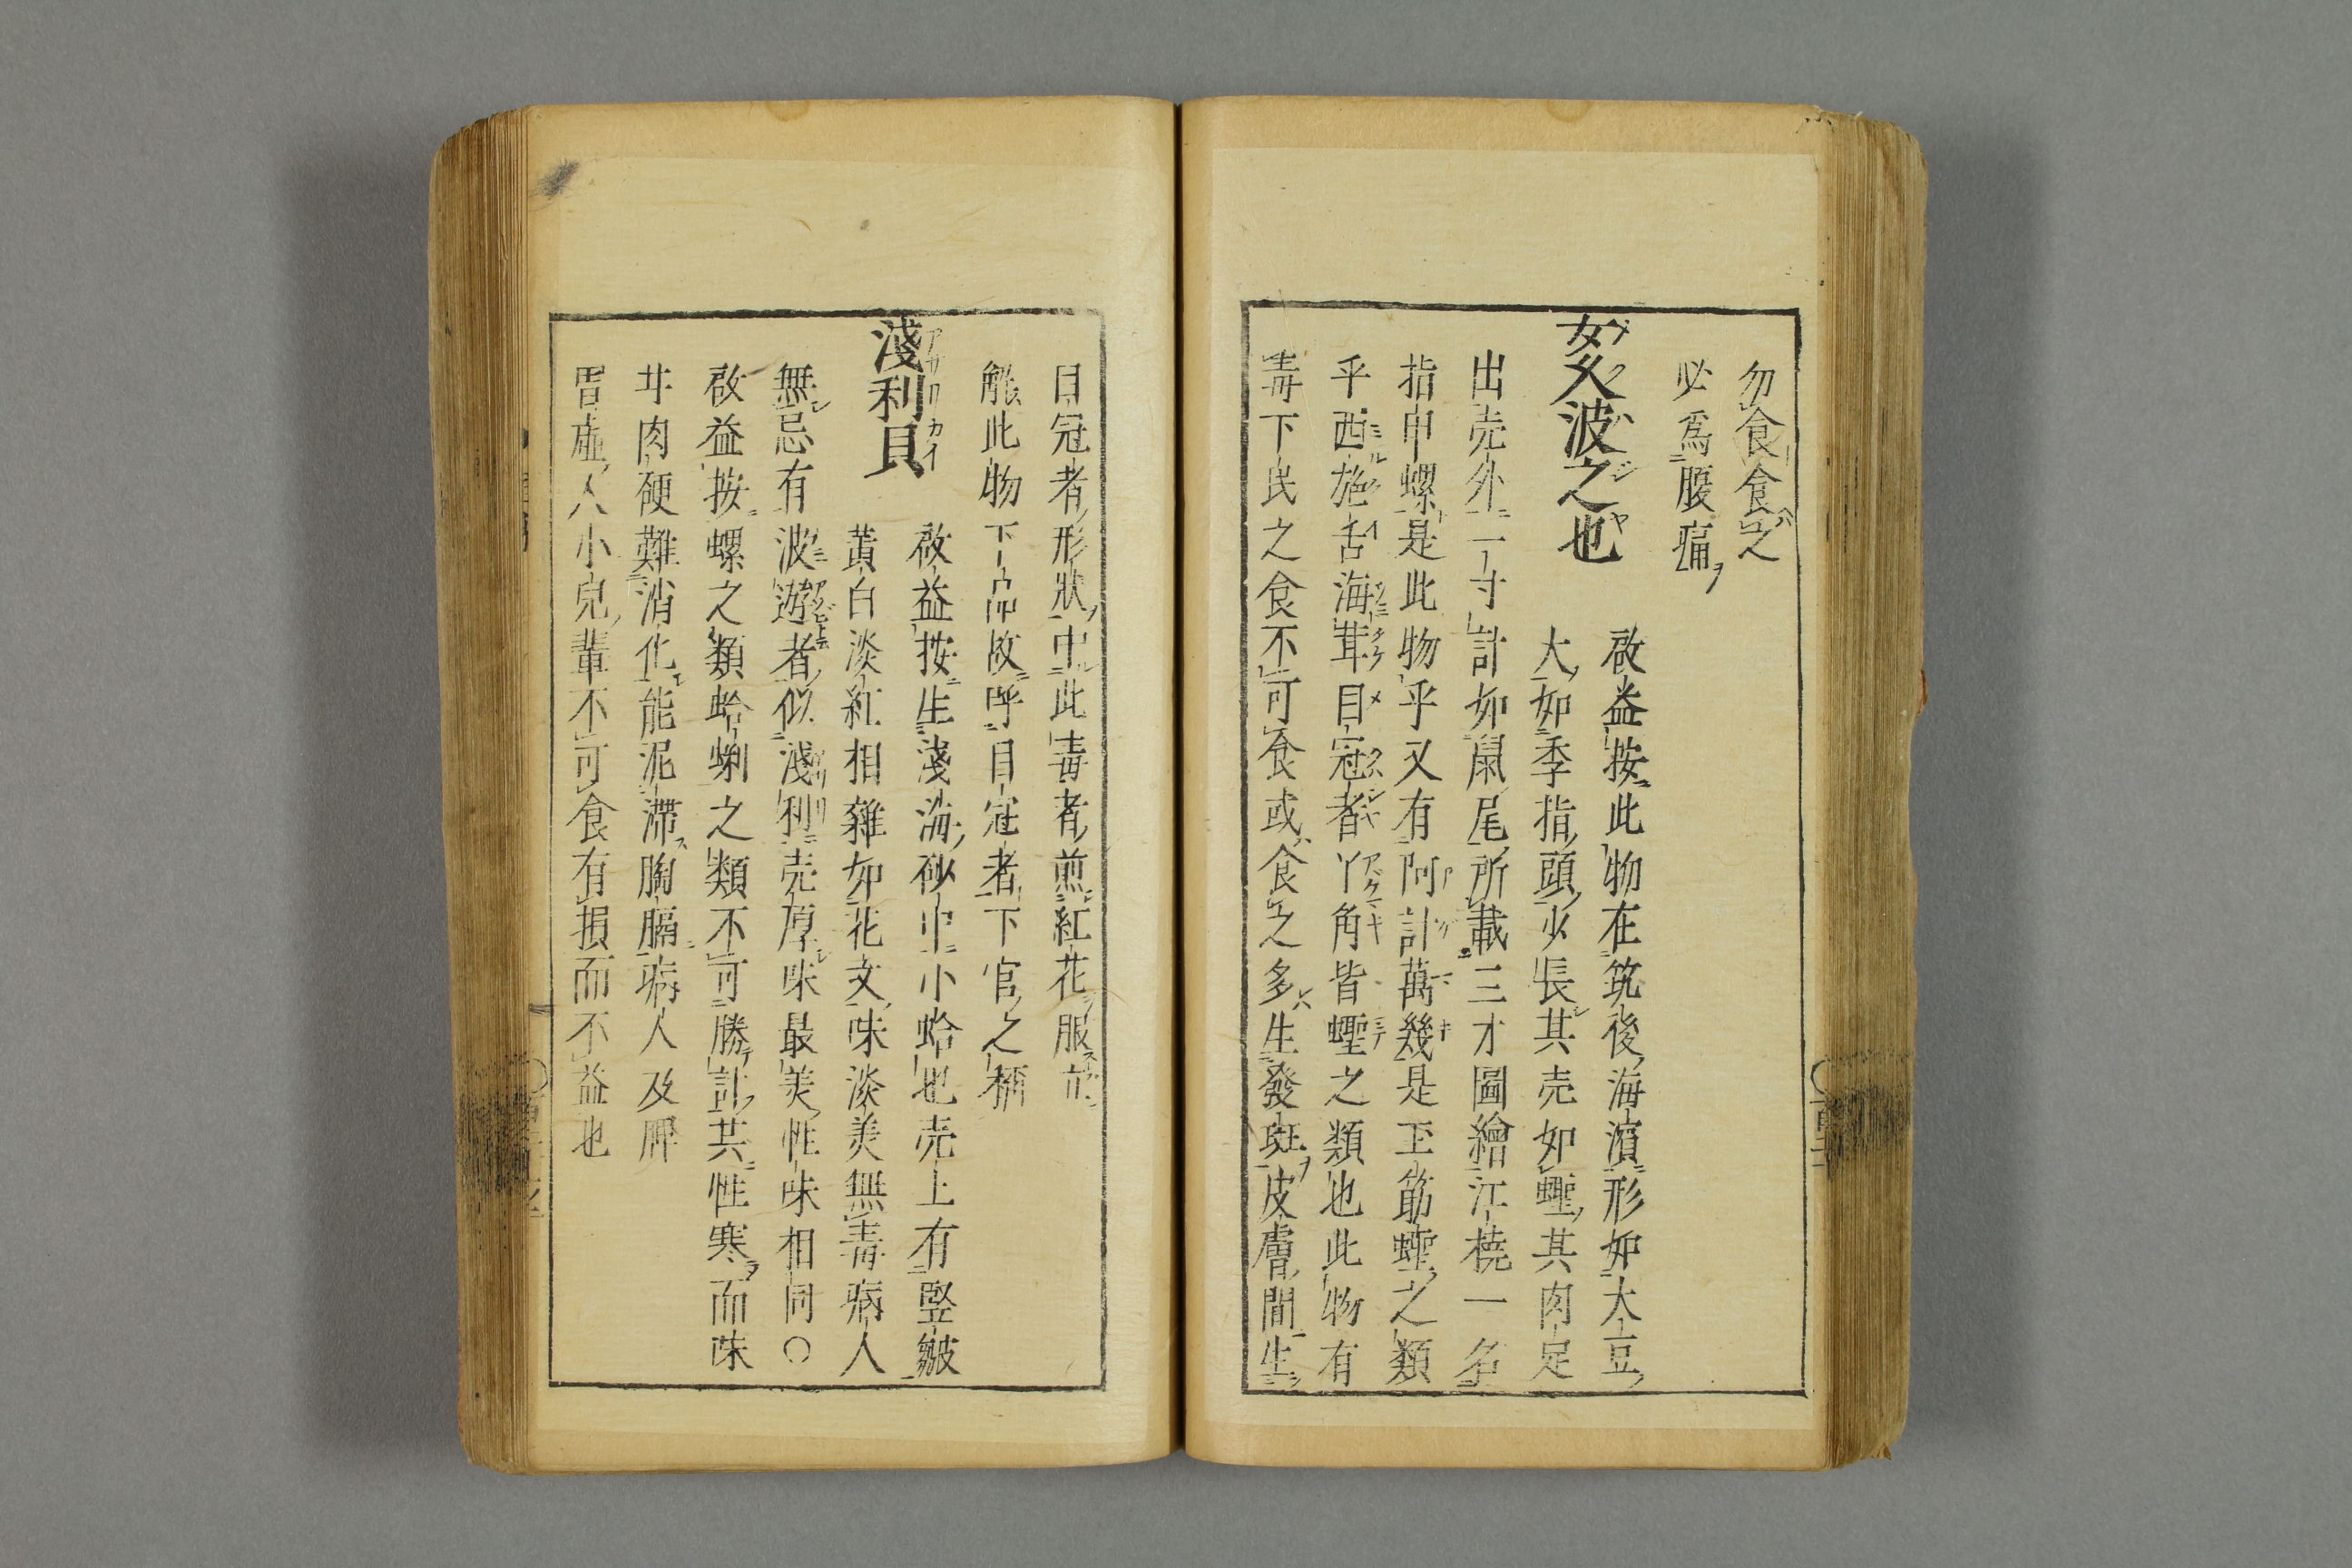 勿食食之
必爲腹痛
女久波之也
啟益按此物在筑後海濱形如大豆
大如季指頭少長其売如蟶其肉足
出売外一寸計如鼠尾所載三才圖繪江橈一名
指甲螺是此物乎又有阿計萬幾是玉筯蟶之類
乎西施舌海茸目冠者丫角皆蟶之類也此物有
毒下民之食不可食或食之多生發斑皮膚間生
目冠者形狀中此毒者煎紅花服
解此物下品故呼目冠者下官之稱
淺利貝
啟益按生淺海砂中小蛤也売上有竪皺
黃白淡紅相雜如花文味淡美無毒病人
無忌有波遊者似淺利売厚味最美性味相同〇
啟益按螺之類蛤蜊之類不可勝計共性寒而味
甘肉硬難消化能泥滯胸膈病人及脾
胃虛人小兒輩不可食有損而不益也